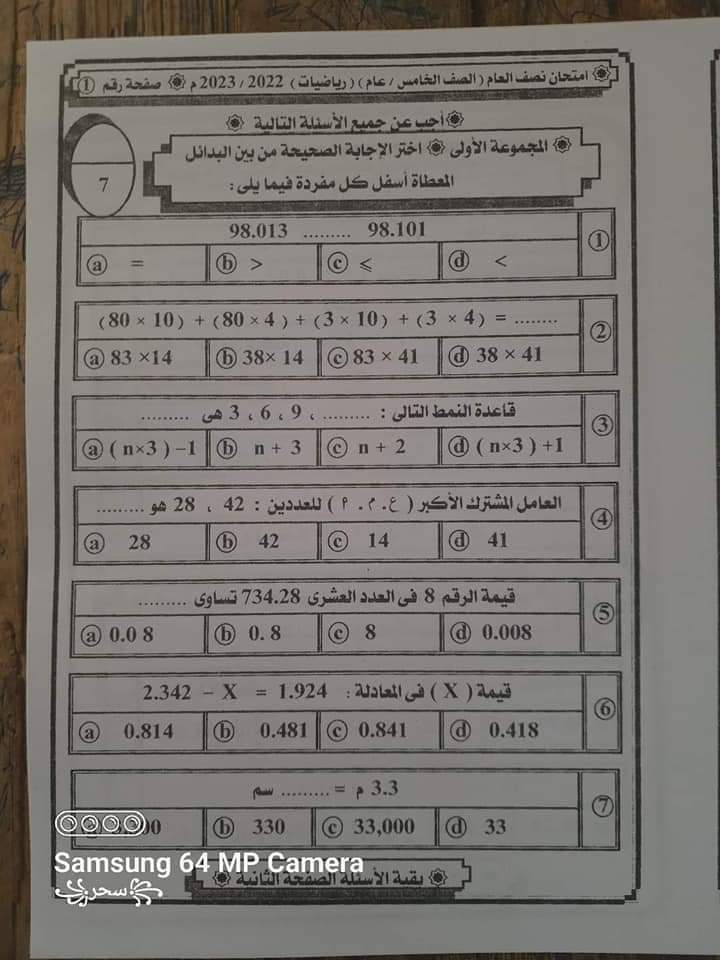 امتحان نصف العام ( الصف الخامس / عام ) ( رياضيات ) 2022 / 2023 م صفحة رقم 1
أجب عن جميع الأسئلة التالية
7
المجموعة الأولى اختر الإجابة الصحيحة من بين البدائل
المعطاة أسفل كل مفردة فيما يلى :
1
98.013 ......... 98.101
a = b > c ⩽ d <
2
(80 × 10) + (80 × 4) + (3 × 10) + (3 × 4) = ........
a 83 ×14 b 38× 14 c 83 × 41 d 38 × 41
3
قاعدة النمط التالى : ......... ، 9 ، 6 ، 3 هى .........
a ( n×3 ) −1 b n + 3 c n + 2 d ( n×3 ) +1
4
العامل المشترك الأكبر ( ع . م . م ) للعددين : 42 ، 28 هو .........
a 28 b 42 c 14 d 41
5
قيمة الرقم 8 فى العدد العشرى 734.28 تساوى .........
a 0.0 8 b 0. 8 c 8 d 0.008
6
قيمة ( X ) فى المعادلة : 2.342 − X = 1.924
a 0.814 b 0.481 c 0.841 d 0.418
7
3.3 م = ......... سم
b 330 c 33,000 d 33
بقية الأسئلة الصفحة الثانية
Samsung 64 MP Camera
سحر